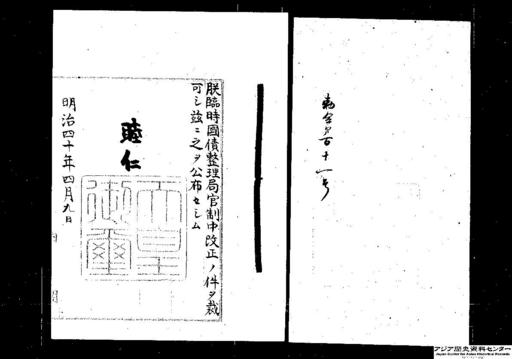 勅令第百十一号
朕臨時國債整理局官制中改正ノ件ヲ裁
可シ茲ニ之ヲ公布セシム
睦仁
天皇
御璽
明治四十年四月九日
アジア歴史資料センター
Japan Center for Asian Historical Records